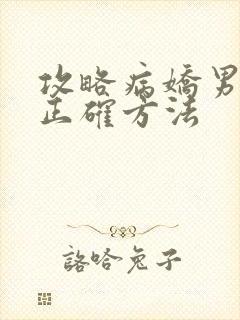 攻略病嬌男
正確方法
詻哈兔子